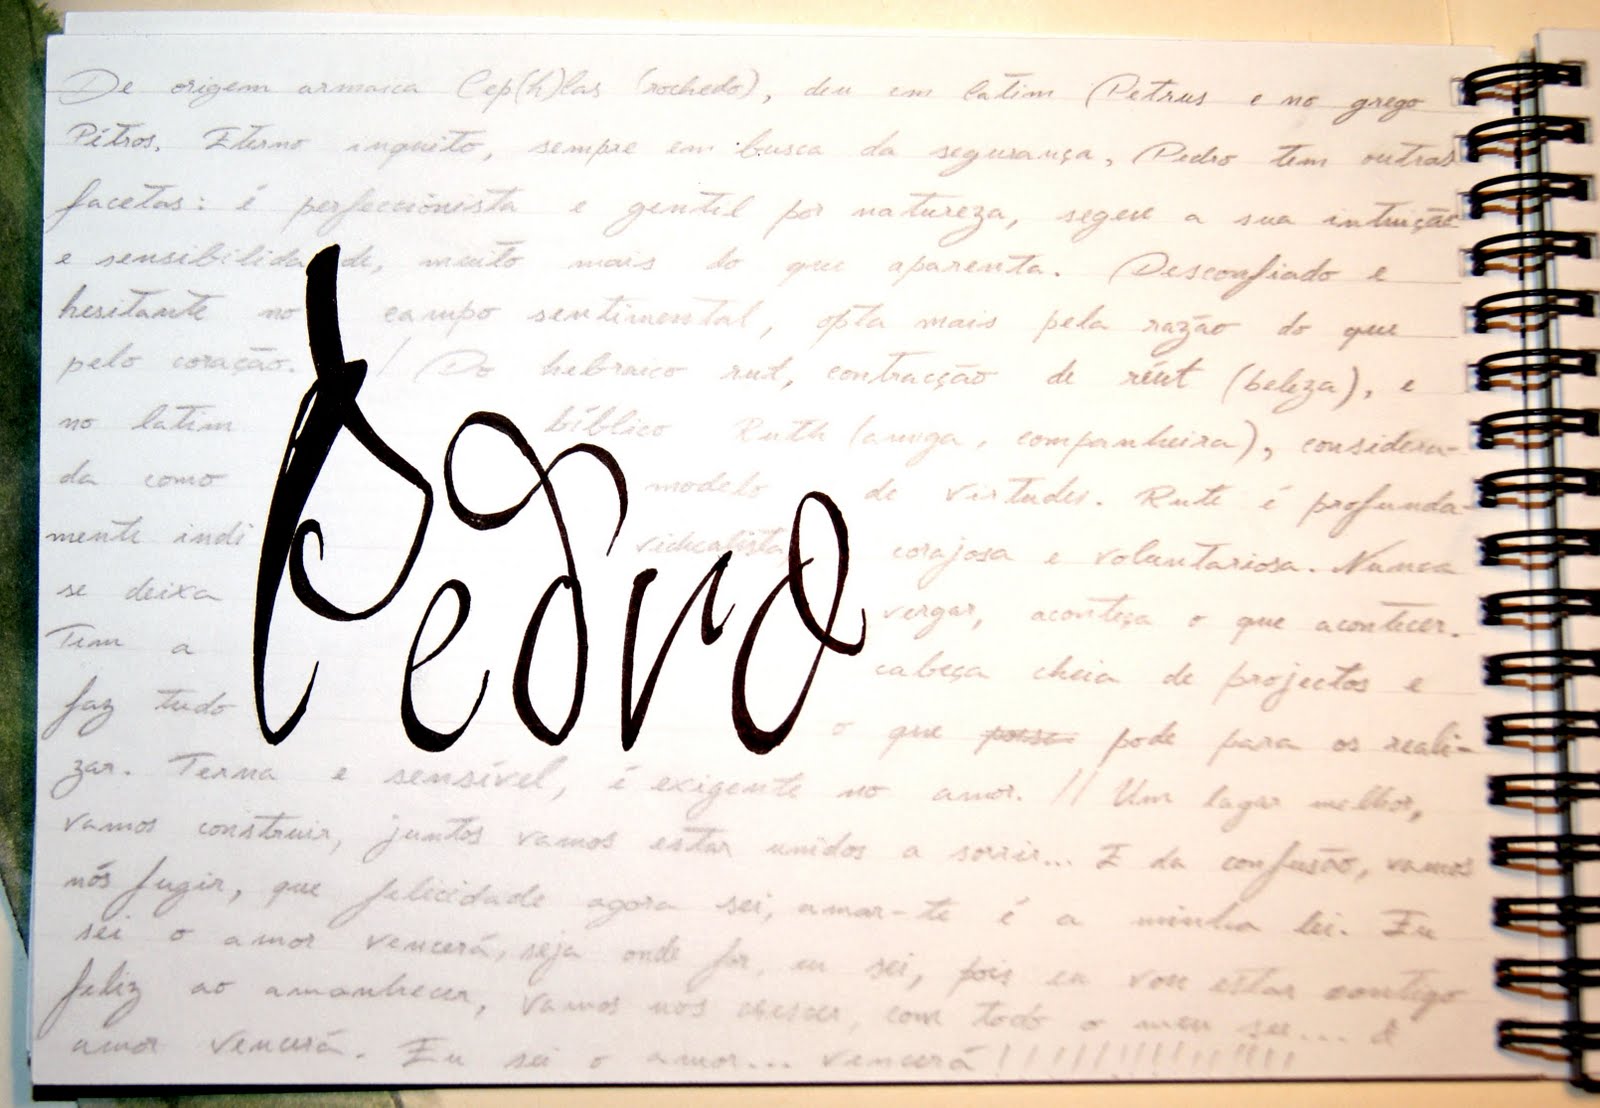 De origem armaica Cep(h)las (rochedo), deu em latim Petrus e no grego
Pétros. Eterno inquito, sempre em busca da segurança, Pedro tem outras
facetas: é perfeccionista e gentil por natureza, segue a sua intuição
e sensibilidade, muito mais do que aparenta. Desconfiado e
hesitante no campo sentimental, opta mais pela razão do que
pelo coração. / Do hebraico rut, contracção de réut (beleza), e
no latim bíblico Ruth (amiga, companheira), considera-
da como modelo de virtudes. Rute é profunda-
mente individualista, corajosa e voluntariosa. Nunca
se deixa vergar, aconteça o que acontecer.
Tem a cabeça cheia de projectos e
faz tudo o que pode para os reali-
zar. Terna e sensível, é exigente no amor. // Um lugar melhor,
vamos construir, juntos vamos estar unidos a sorrir... E da confusão, vamos
nós fugir, que felicidade agora sei, amar-te é a minha lei. Eu
sei o amor vencerá, seja onde for, eu sei, pois eu vou estar contigo
feliz ao amanhecer, vamos nos crescer, com todo o meu ser... O
amor vencerá. Eu sei o amor... vencerá!!!!!!!!!!!!!!
Pedro